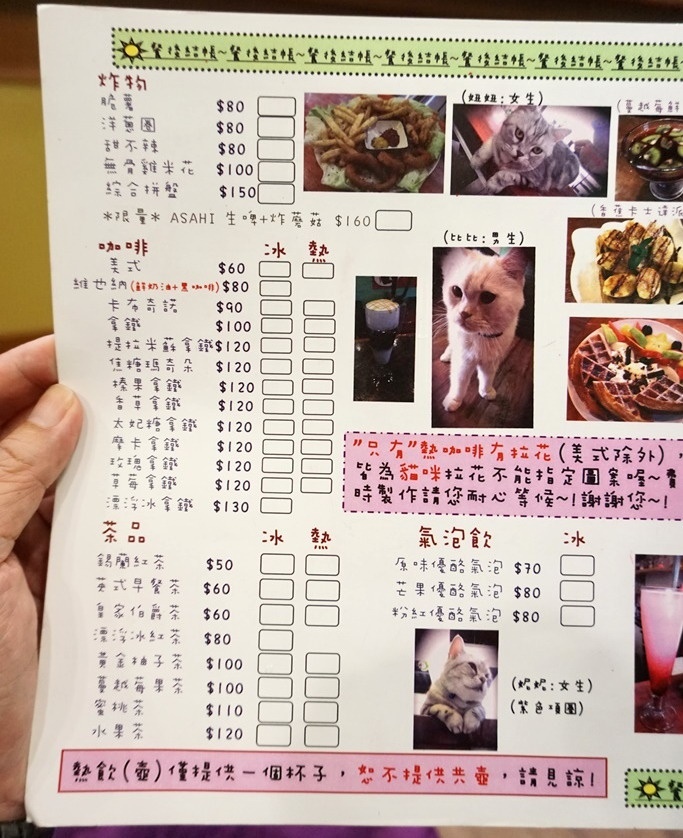 餐後結帳~餐後結帳~餐後結帳~餐後結帳~餐後結帳~餐後結帳~餐
炸物
脆薯 $80
洋蔥圈 $80
甜不辣 $80
無骨雞米花 $100
綜合拼盤 $150
*限量* ASAHI 生啤+炸蘑菇 $160
(妞妞:女生)
(蔓越莓鮮
(香蕉卡士達派
(比比:男生)
咖啡 冰 熱
美式 $60
維也納(鮮奶油+黑咖啡) $80
卡布奇諾 $90
拿鐵 $100
提拉米蘇拿鐵 $120
焦糖瑪奇朵 $120
榛果拿鐵 $120
香草拿鐵 $120
太妃糖拿鐵 $120
摩卡拿鐵 $120
玫瑰拿鐵 $120
草莓拿鐵 $120
漂浮冰拿鐵 $130
"只有"熱咖啡有拉花(美式除外),
皆為貓咪拉花不能指定圖案喔~費
時製作請您耐心等候~!謝謝您~!
茶品 冰 熱
錫蘭紅茶 $50
英式早餐茶 $60
皇家伯爵茶 $60
漂浮冰紅茶 $80
黃金柚子茶 $100
蔓越莓果茶 $100
蜜桃茶 $110
水果茶 $120
氣泡飲 冰
原味優酪氣泡 $70
芒果優酪氣泡 $80
粉紅優酪氣泡 $80
(妮妮:女生)
(紫色項圈)
熱飲(壺)僅提供一個杯子,恕不提供共壺,請見諒!
餐